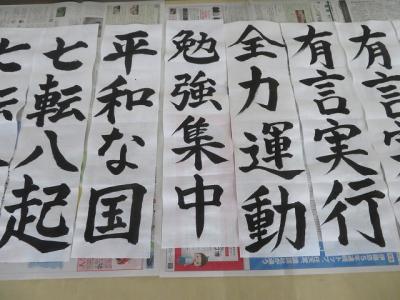 有言実
有言実行
全力運動
勉強集中
平和な国
七転八起
七転